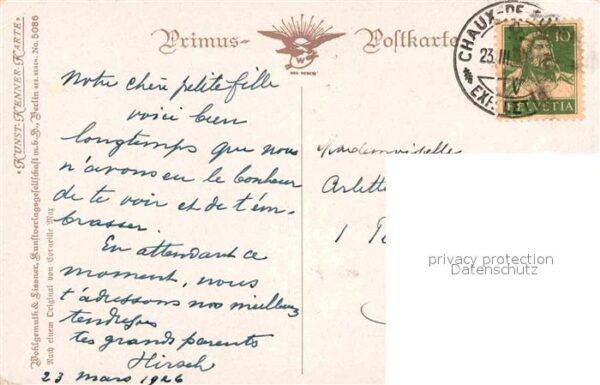 „KUNST-KENNER-KARTE“
Wohlgemuth & Lissner, Kunstverlagsgesellschaft m.b.H., Berlin No. 5086
Nach einem Original von Corneille Max
Primus- Postkarte
Notre chère petite fille
voici bien
longtemps que nous
n'avons eu le bonheur
de te voir et de t'em-
brasser.
En attendant ce
moment, nous
t'adressons nos meilleures
tendresses
tes grands parents
Hirsch
23 mars 1926
CHAUX-DE-
23.III
V
10
HELVETIA
Mademoiselle
Arlette
1
privacy protection
Datenschutz